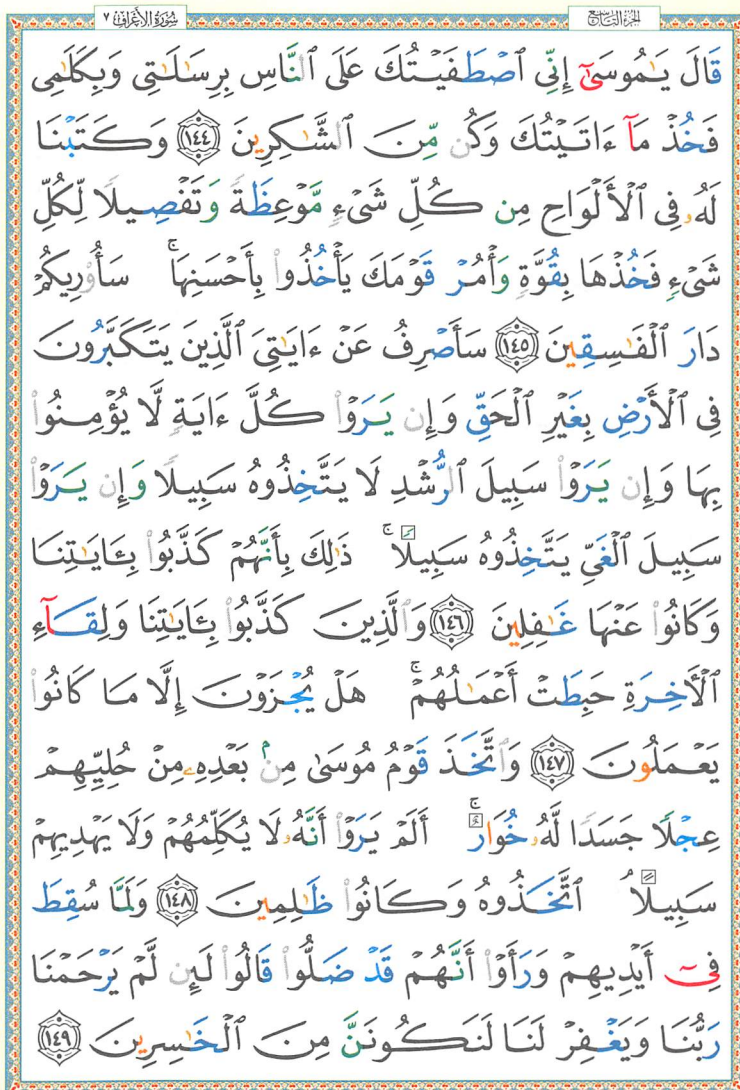 الجزء التاسع سورة الأعراف ٧
قَالَ يَـٰمُوسَىٰٓ إِنِّى ٱصْطَفَيْتُكَ عَلَى ٱلنَّاسِ بِرِسَـٰلَـٰتِى وَبِكَلَـٰمِى
فَخُذْ مَآ ءَاتَيْتُكَ وَكُن مِّنَ ٱلشَّـٰكِرِينَ ١٤٤ وَكَتَبْنَا
لَهُۥ فِى ٱلْأَلْوَاحِ مِن كُلِّ شَىْءٍ مَّوْعِظَةً وَتَفْصِيلًا لِّكُلِّ
شَىْءٍ فَخُذْهَا بِقُوَّةٍ وَأْمُرْ قَوْمَكَ يَأْخُذُوا۟ بِأَحْسَنِهَا ۚ سَأُو۟رِيكُمْ
دَارَ ٱلْفَـٰسِقِينَ ١٤٥ سَأَصْرِفُ عَنْ ءَايَـٰتِىَ ٱلَّذِينَ يَتَكَبَّرُونَ
فِى ٱلْأَرْضِ بِغَيْرِ ٱلْحَقِّ وَإِن يَرَوْا۟ كُلَّ ءَايَةٍ لَّا يُؤْمِنُوا۟
بِهَا وَإِن يَرَوْا۟ سَبِيلَ ٱلرُّشْدِ لَا يَتَّخِذُوهُ سَبِيلًا وَإِن يَرَوْا۟
سَبِيلَ ٱلْغَىِّ يَتَّخِذُوهُ سَبِيلًا ۚ ذَٰلِكَ بِأَنَّهُمْ كَذَّبُوا۟ بِـَٔايَـٰتِنَا
وَكَانُوا۟ عَنْهَا غَـٰفِلِينَ ١٤٦ وَٱلَّذِينَ كَذَّبُوا۟ بِـَٔايَـٰتِنَا وَلِقَآءِ
ٱلْـَٔاخِرَةِ حَبِطَتْ أَعْمَـٰلُهُمْ ۚ هَلْ يُجْزَوْنَ إِلَّا مَا كَانُوا۟
يَعْمَلُونَ ١٤٧ وَٱتَّخَذَ قَوْمُ مُوسَىٰ مِنۢ بَعْدِهِۦ مِنْ حُلِيِّهِمْ
عِجْلًا جَسَدًا لَّهُۥ خُوَارٌ ۚ أَلَمْ يَرَوْا۟ أَنَّهُۥ لَا يُكَلِّمُهُمْ وَلَا يَهْدِيهِمْ
سَبِيلًا ۘ ٱتَّخَذُوهُ وَكَانُوا۟ ظَـٰلِمِينَ ١٤٨ وَلَمَّا سُقِطَ
فِىٓ أَيْدِيهِمْ وَرَأَوْا۟ أَنَّهُمْ قَدْ ضَلُّوا۟ قَالُوا۟ لَئِن لَّمْ يَرْحَمْنَا
رَبُّنَا وَيَغْفِرْ لَنَا لَنَكُونَنَّ مِنَ ٱلْخَـٰسِرِينَ ١٤٩